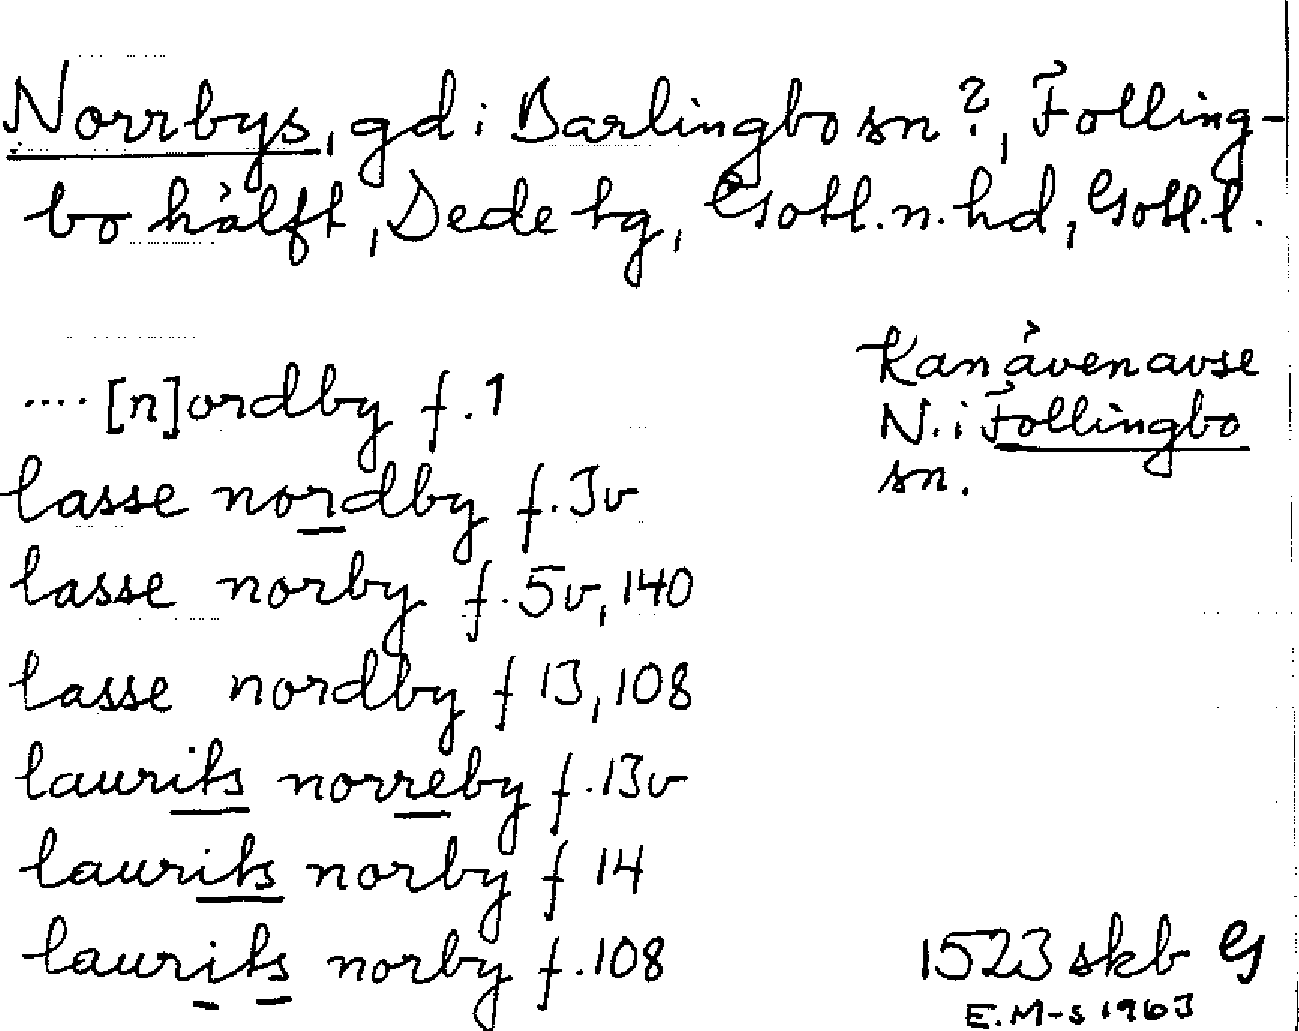 Norrbys, gd i Barlingbo sn?, Folling-
bo hälft, Dede tg, Gotl. n. hd, Gotl. l.
Kan även avse
N. i Follingbo
sn.
.... [n]ordby f. 1
lasse nordby f. 3v
lasse norby f. 5v, 140
lasse nordby f 13, 108
laurits norreby f. 13v
laurits norby f 14
laurits norby f. 108
1523 skb G
E. M-s 1963